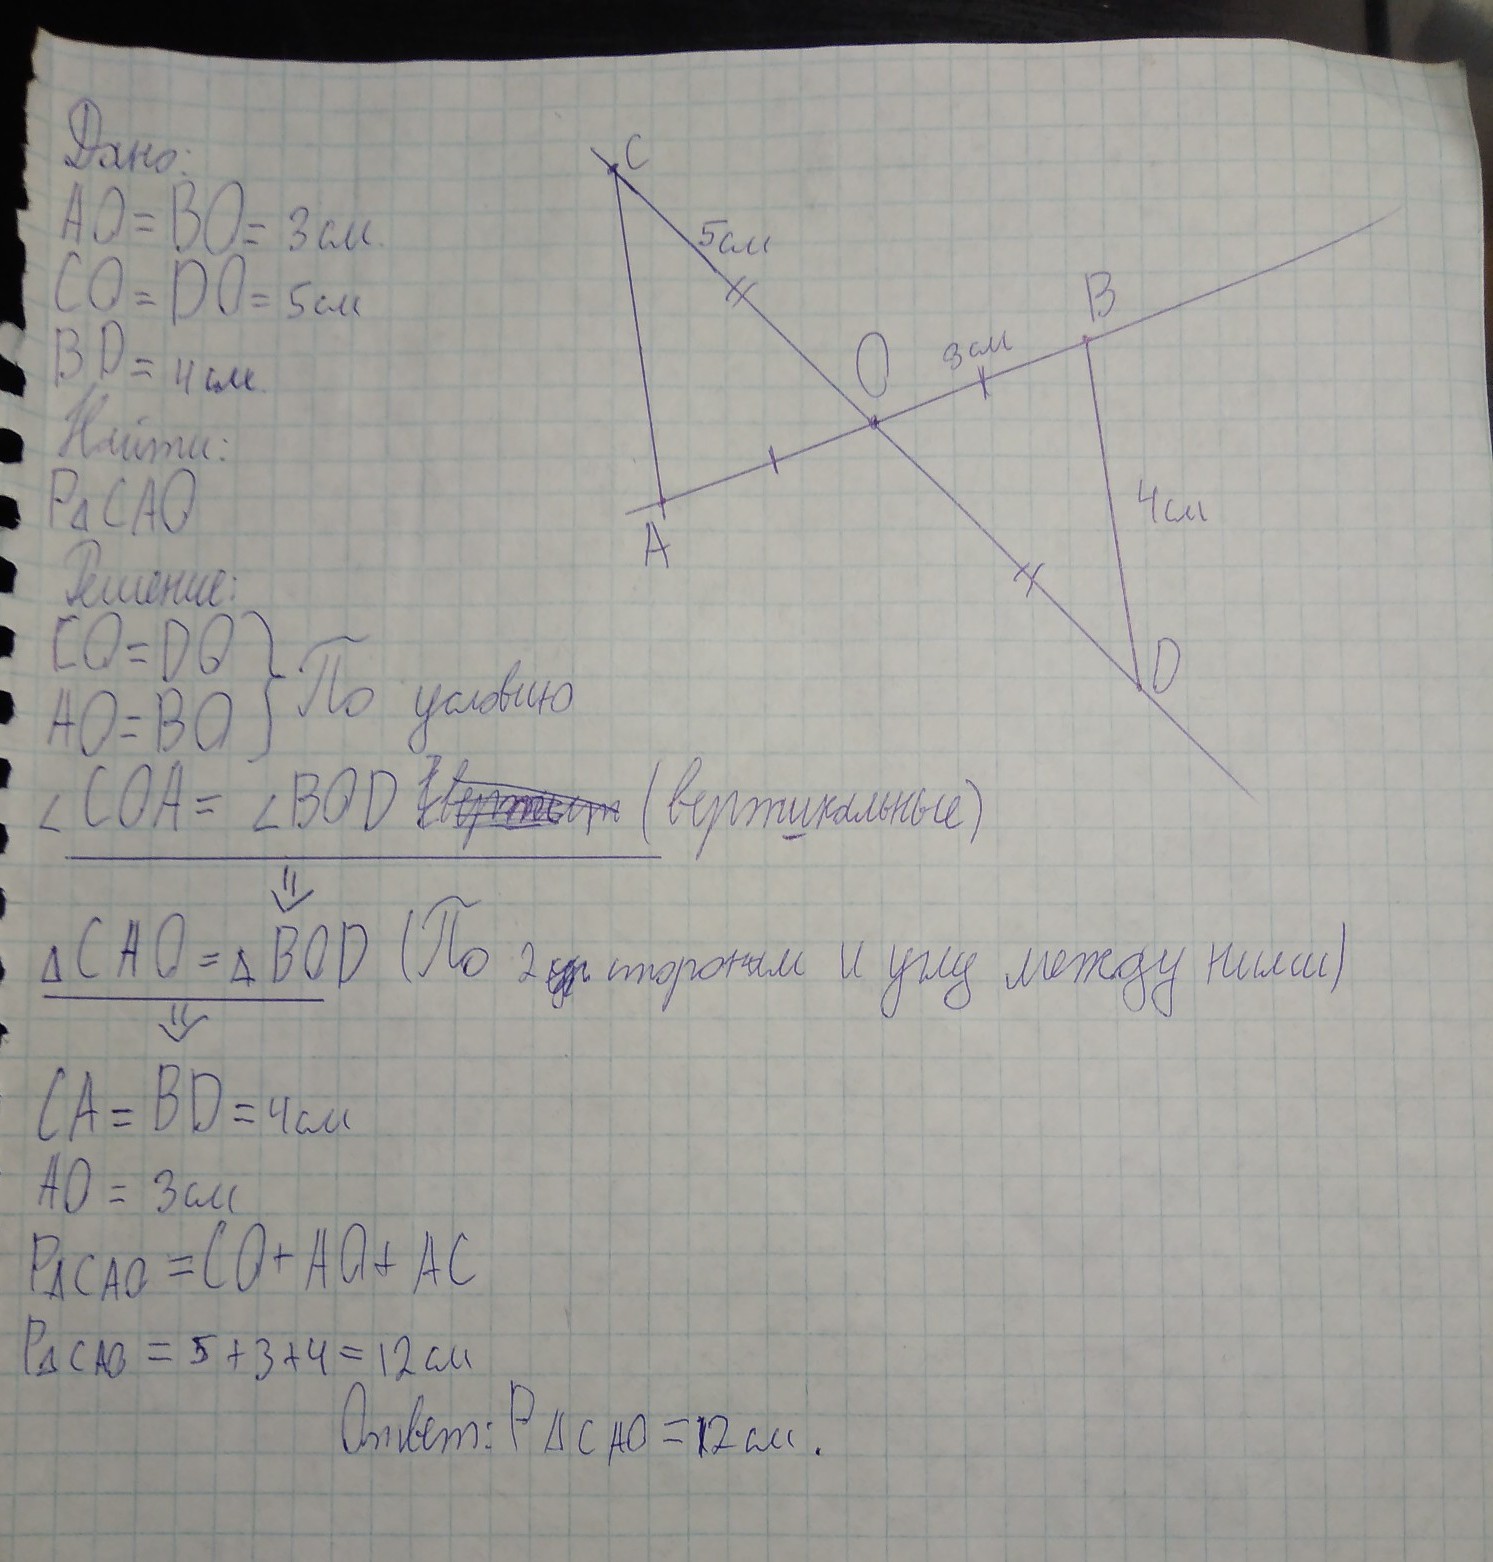 Дано:
AO = BO = 3 см.
CO = DO = 5 см
BD = 4 см.
Найти:
P△CAO
Решение:
CO = DO
AO = BO } По условию
∠COA = ∠BOD (вертикальные)
⇓
△CAO = △BOD (По 2 сторонам и углу между ними)
⇓
CA = BD = 4 см
AO = 3 см
P△CAO = CO + AO + AC
P△CAO = 5 + 3 + 4 = 12 см
Ответ: P△CAO = 12 см.
C
5 см
O
3 см
B
A
4 см
D